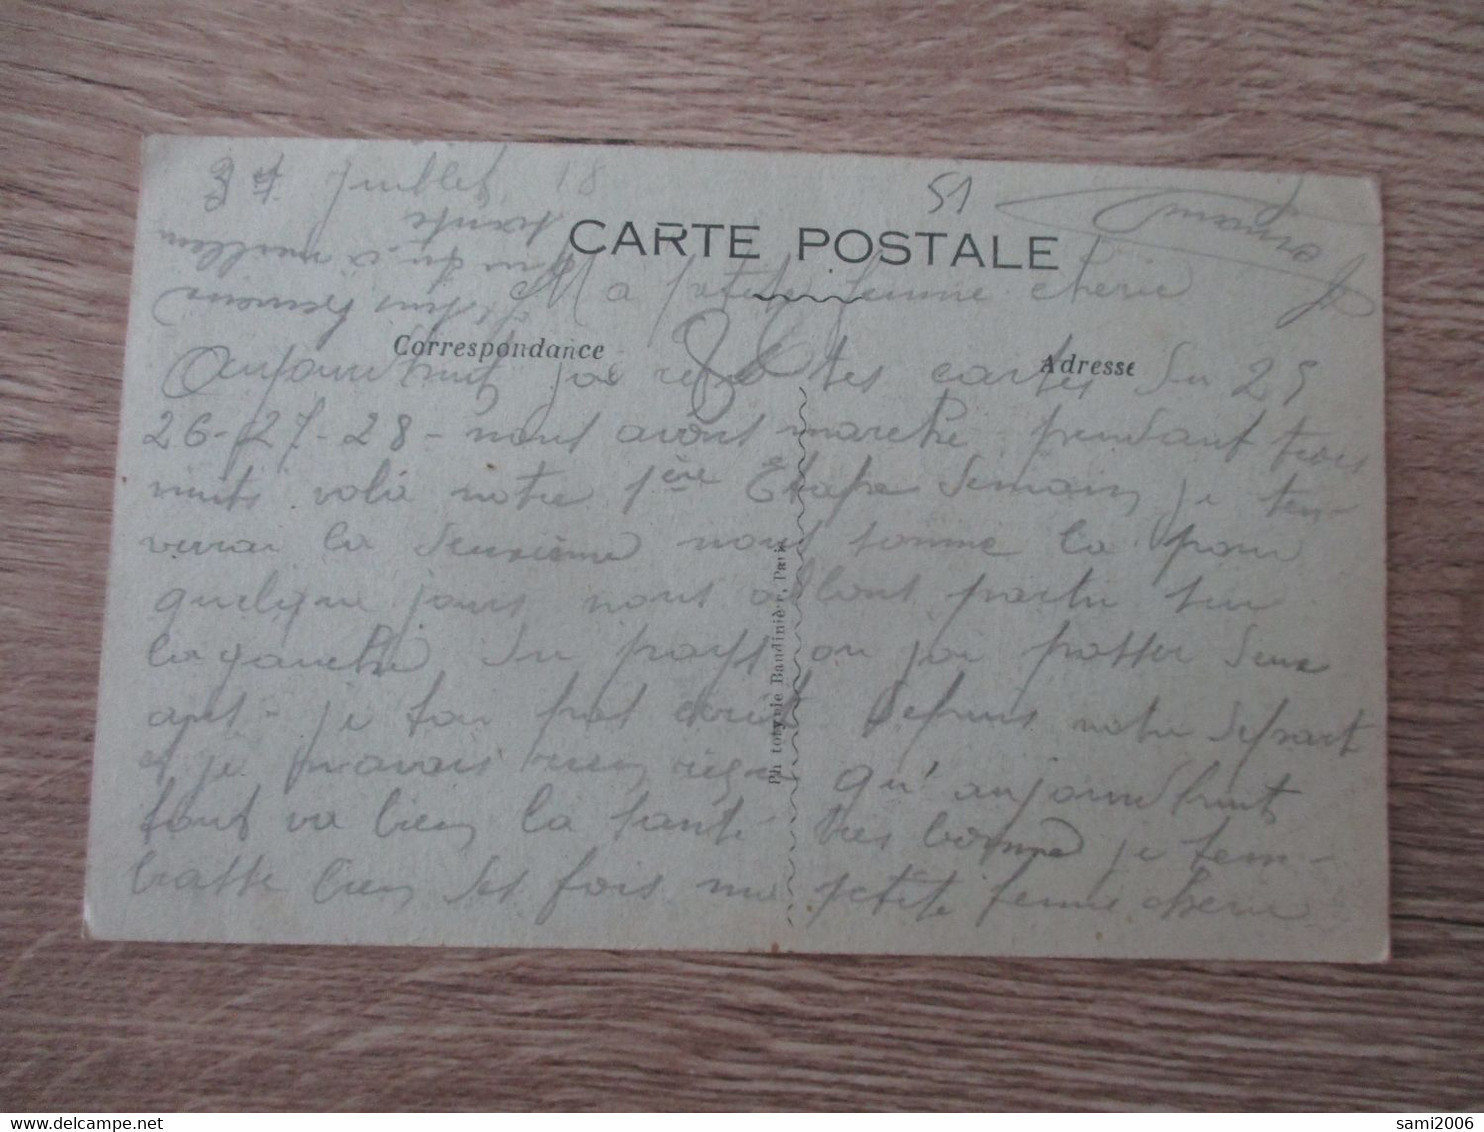 Juillet 18
51
CARTE POSTALE
Ma petite femme cherie
Correspondance
Adresse
86
Aujourdhuit jai reçu tes cartes du 25
26-27-28- nous avons marche pendant trois
nuits volà notre 1ère Etape demain je ten-
verrai la deuxième nous somme la pour
quelque jours nous allons partir sur
la gauche du pays ou jai passer deux
ans- je tou pas ecrit depuis notre depart
et je navais rien reçu qu'aujourdhuit
tout va bien la santé tres bonne je tem-
brasse bien des fois ma petite femme cherie
santé
meilleur
Germain
Phototypie Baudinière, Paris
sami2006